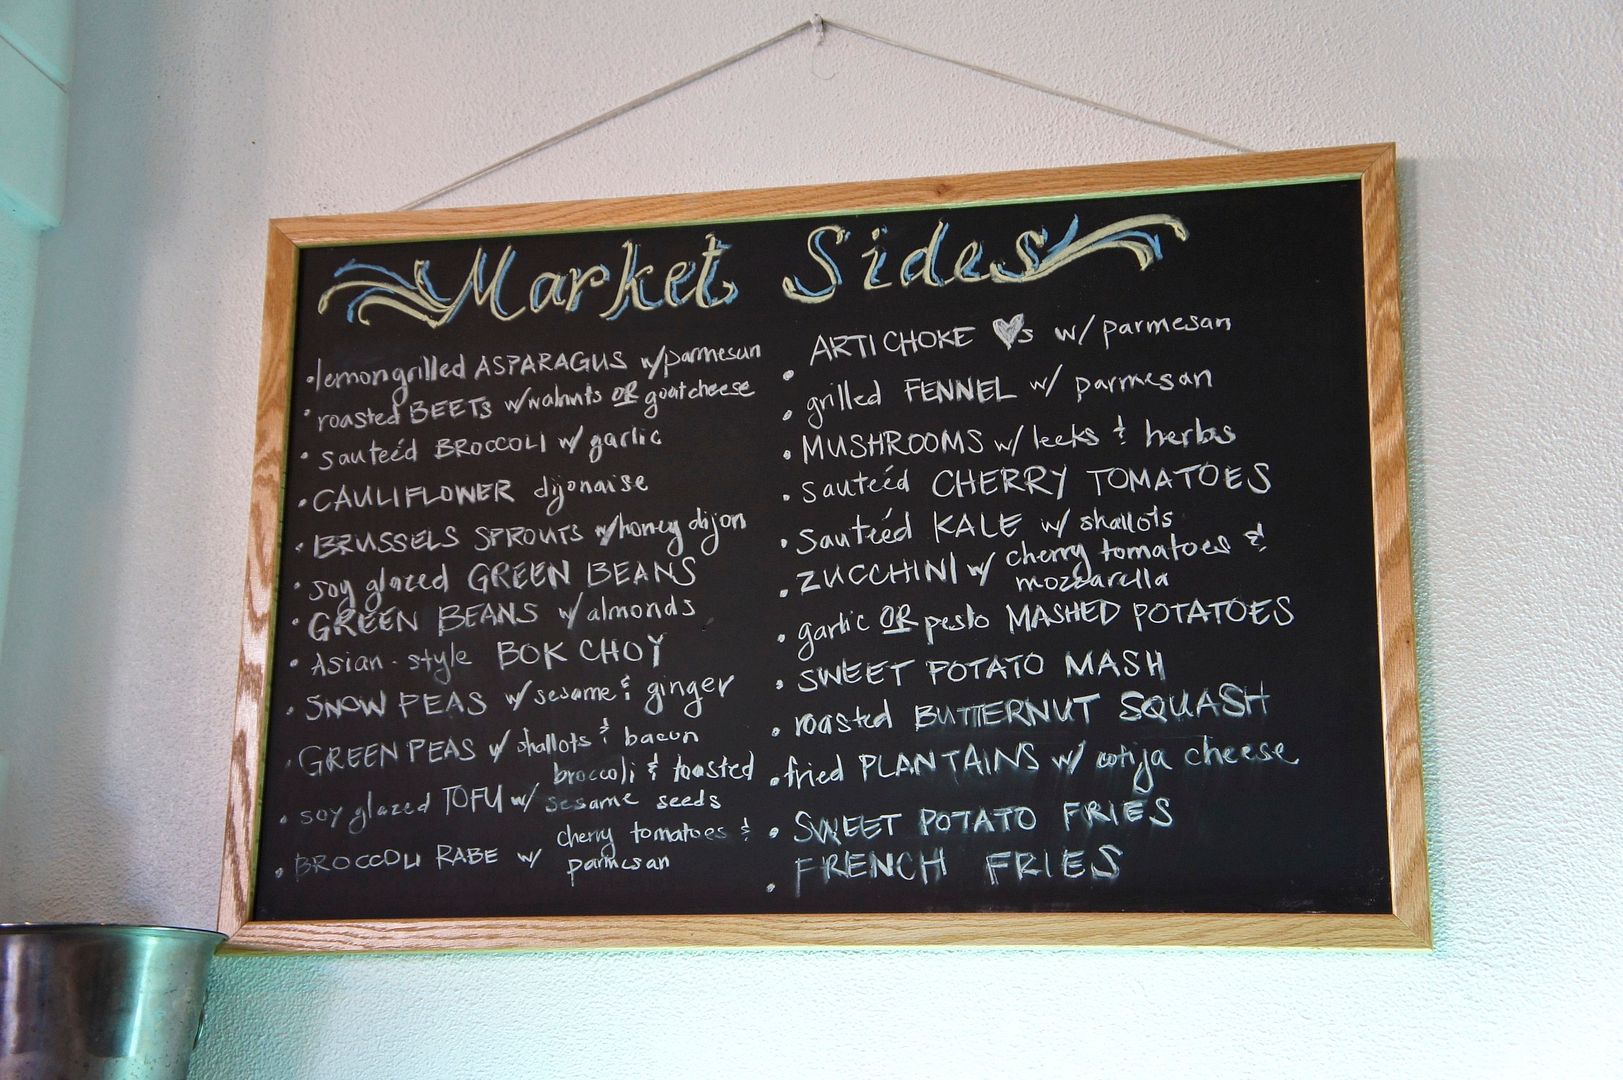 Market Sides
• lemon grilled ASPARAGUS w/parmesan
• roasted BEETS w/walnuts OR goat cheese
• sauteéd BROCCOLI w/ garlic
• CAULIFLOWER dijonaise
• BRUSSELS SPROUTS w/honey dijon
• soy glazed GREEN BEANS
• GREEN BEANS w/almonds
• Asian-style BOK CHOY
• SNOW PEAS w/sesame & ginger
• GREEN PEAS w/ shallots & bacon
broccoli & toasted
• soy glazed TOFU w/ sesame seeds
cherry tomatoes &
• BROCCOLI RABE w/ parmesan
• ARTICHOKE ♥s w/ parmesan
• grilled FENNEL w/ parmesan
• MUSHROOMS w/ leeks & herbs
• sauteéd CHERRY TOMATOES
• sauteéd KALE w/ shallots
• ZUCCHINI w/ cherry tomatoes &
mozzarella
• garlic OR pesto MASHED POTATOES
• SWEET POTATO MASH
• roasted BUTTERNUT SQUASH
• fried PLANTAINS w/ cotija cheese
• SWEET POTATO FRIES
• FRENCH FRIES